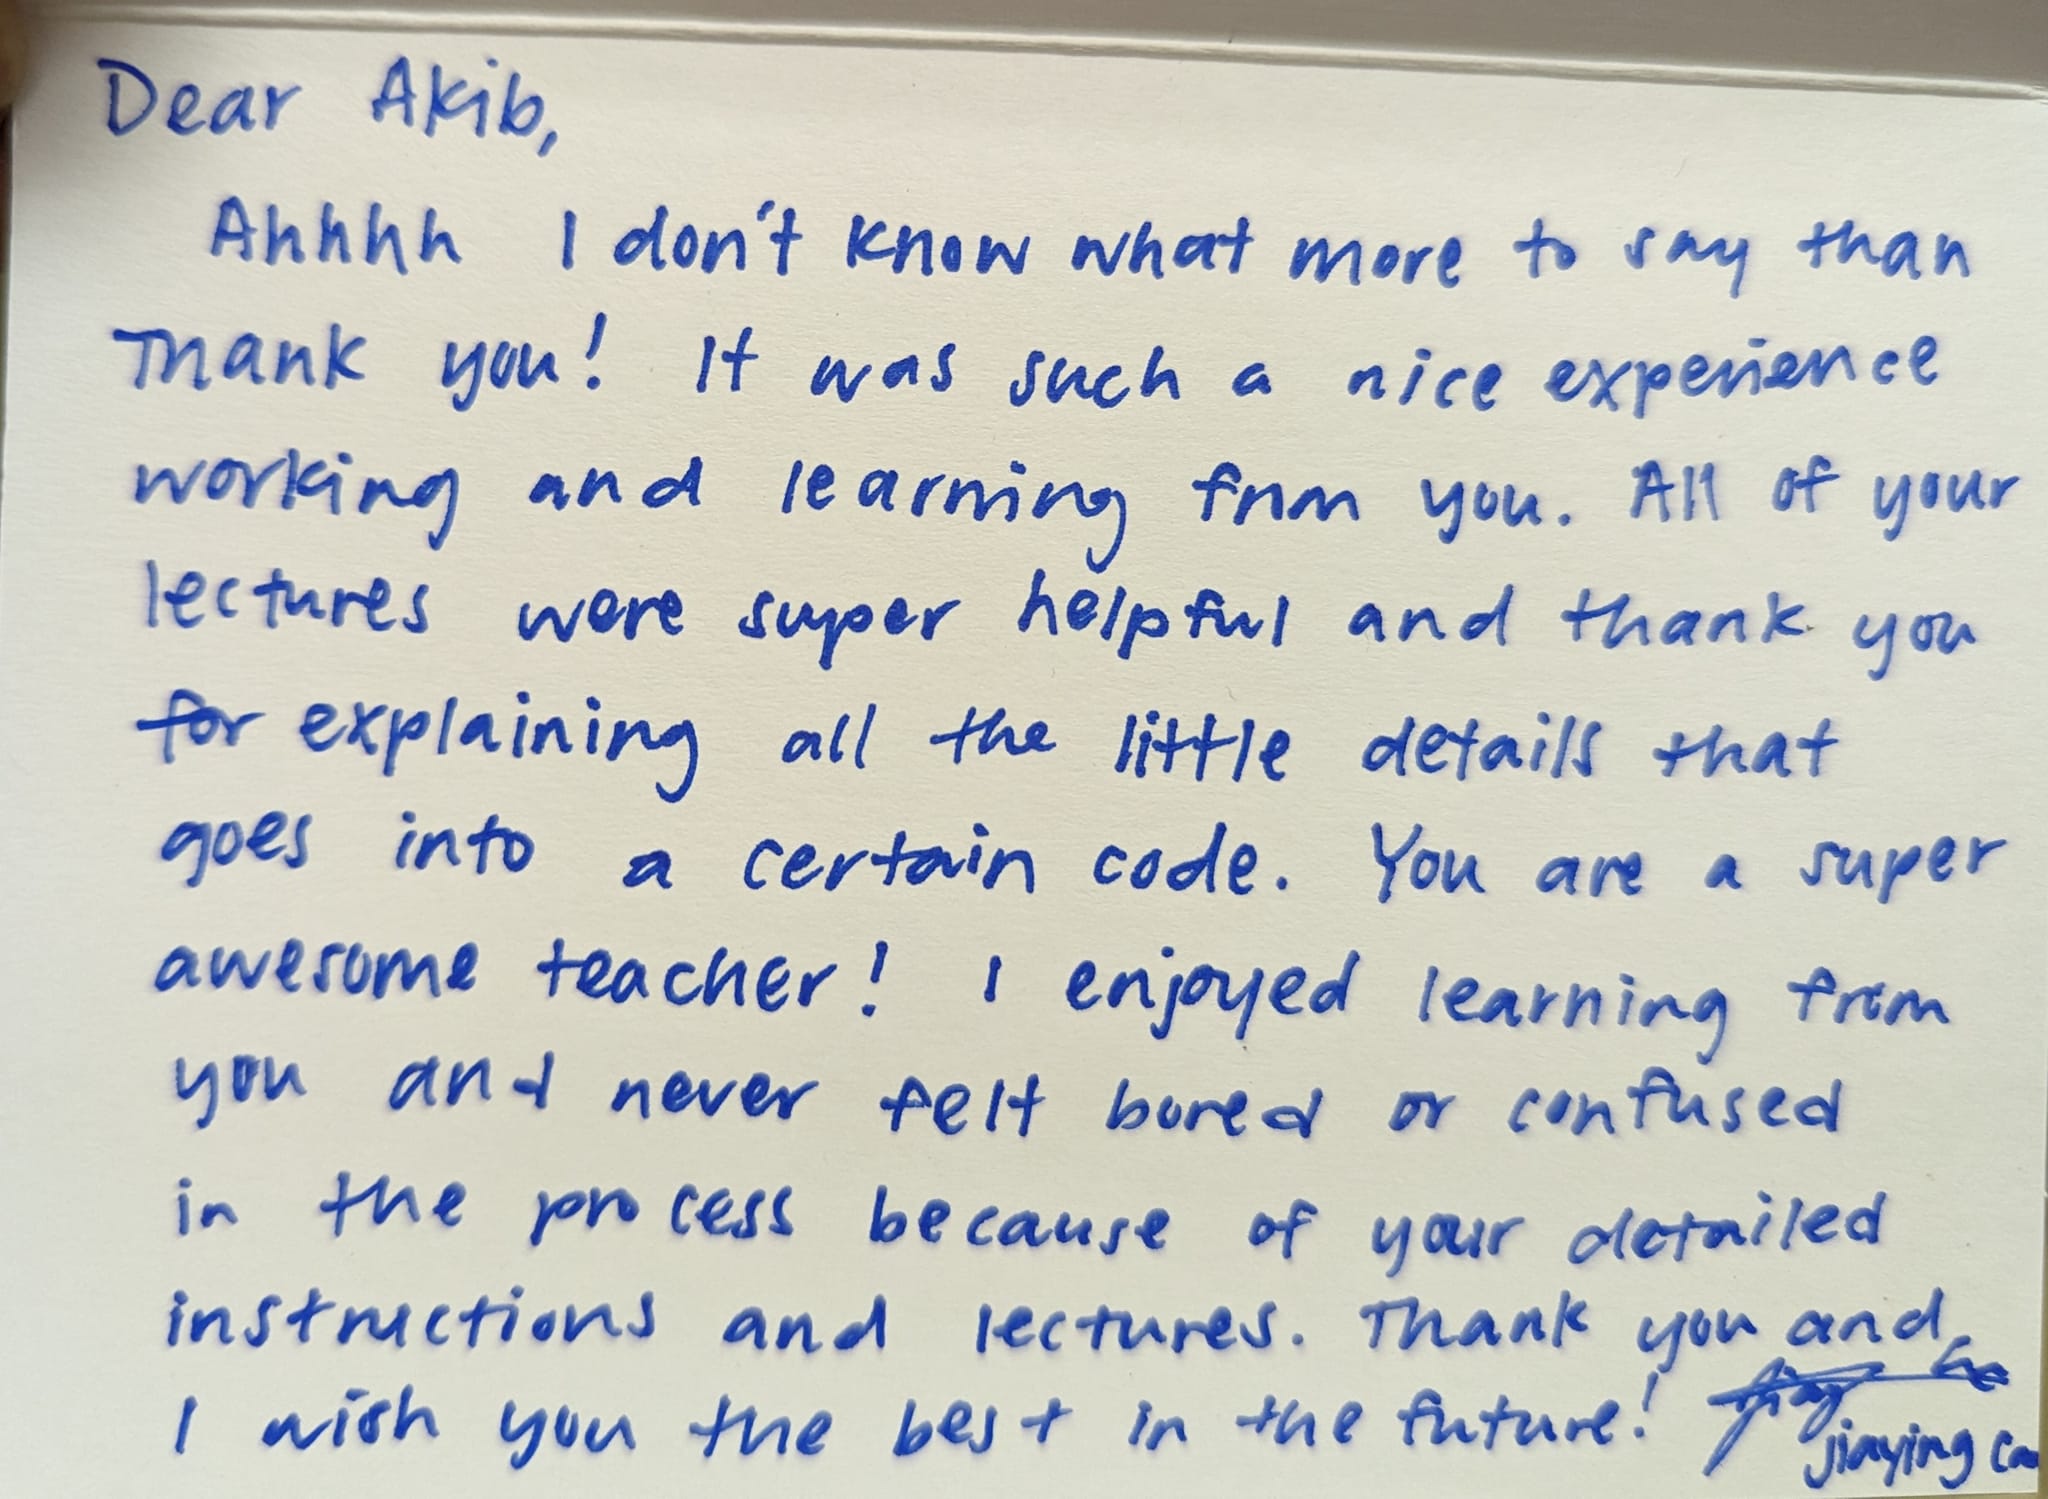 Dear Akib,
Ahhhh I don't know what more to say than
Thank you! It was such a nice experience
working and learning from you. All of your
lectures were super helpful and thank you
for explaining all the little details that
goes into a certain code. You are a super
awesome teacher! I enjoyed learning from
you and never felt bored or confused
in the process because of your detailed
instructions and lectures. Thank you and
I wish you the best in the future!
Jiaying